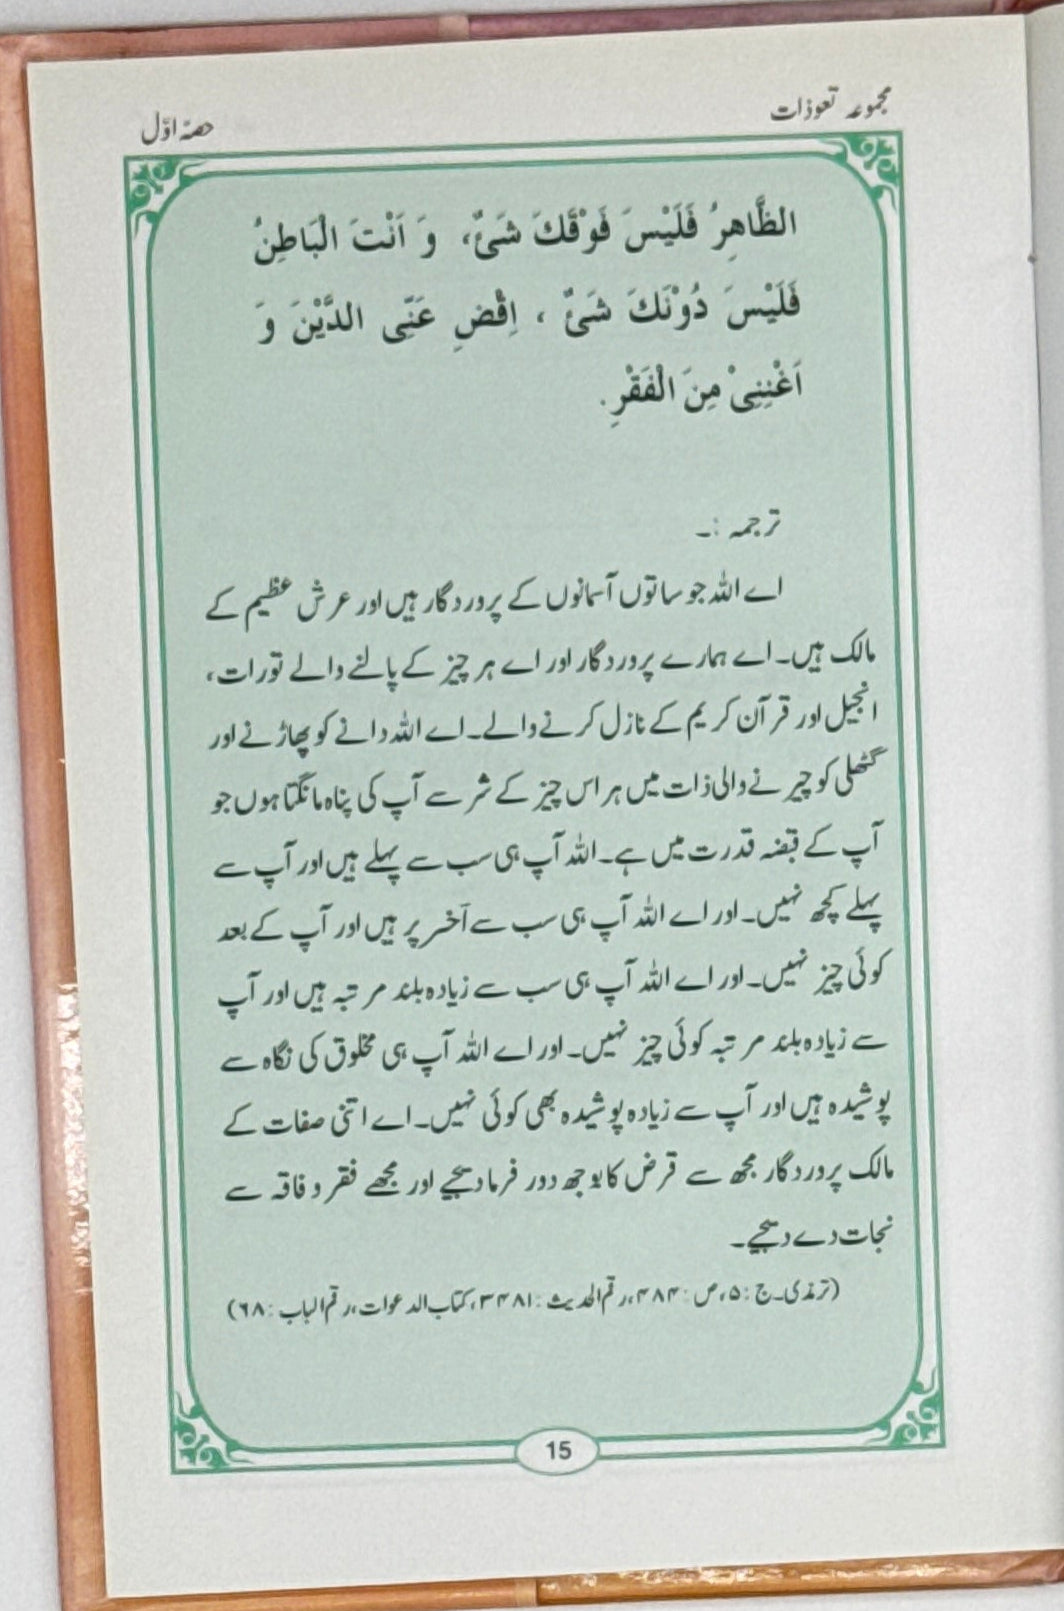 مجموعہ تعوذات
حصّہ اوّل
الظَّاهِرُ فَلَيْسَ فَوْقَكَ شَیْءٌ، وَ اَنْتَ الْبَاطِنُ
فَلَيْسَ دُوْنَكَ شَیْءٌ ، اِقْضِ عَنِّی الدَّيْنَ وَ
اَغْنِنِیْ مِنَ الْفَقْرِ.
ترجمہ :۔
اے اللہ جو ساتوں آسمانوں کے پروردگار ہیں اور عرش عظیم کے
مالک ہیں۔ اے ہمارے پروردگار اور اے ہر چیز کے پالنے والے تورات،
انجیل اور قرآن کریم کے نازل کرنے والے۔ اے اللہ دانے کو پھاڑنے اور
گٹھلی کو چیرنے والی ذات میں ہر اس چیز کے شر سے آپ کی پناہ مانگتا ہوں جو
آپ کے قبضہ قدرت میں ہے۔ اللہ آپ ہی سب سے پہلے ہیں اور آپ سے
پہلے کچھ نہیں۔ اور اے اللہ آپ ہی سب سے آخر پر ہیں اور آپ کے بعد
کوئی چیز نہیں۔ اور اے اللہ آپ ہی سب سے زیادہ بلند مرتبہ ہیں اور آپ
سے زیادہ بلند مرتبہ کوئی چیز نہیں۔ اور اے اللہ آپ ہی مخلوق کی نگاہ سے
پوشیدہ ہیں اور آپ سے زیادہ پوشیدہ بھی کوئی نہیں۔ اے اتنی صفات کے
مالک پروردگار مجھ سے قرض کا بوجھ دور فرما دیجیے اور مجھے فقر و فاقہ سے
نجات دے دیجیے۔
(ترمذی۔ ج : ۵، ص : ۴۸۴، رقم الحدیث : ۳۴۸۱، کتاب الدعوات، رقم الباب : ۶۸)
15